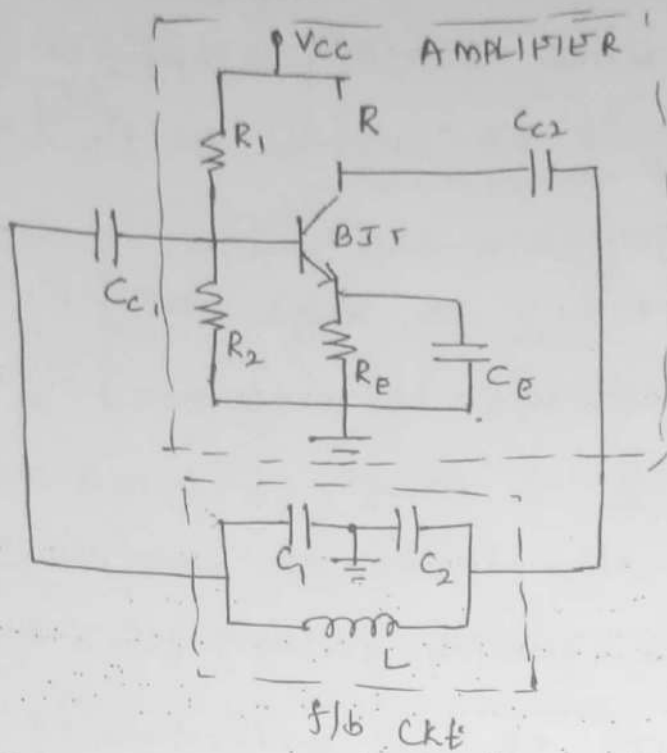 VCC AMPLIFIER
R1
R
CC2
BJT
CC1
R2
RE
Ce
C1
C2
L
f/b ckt